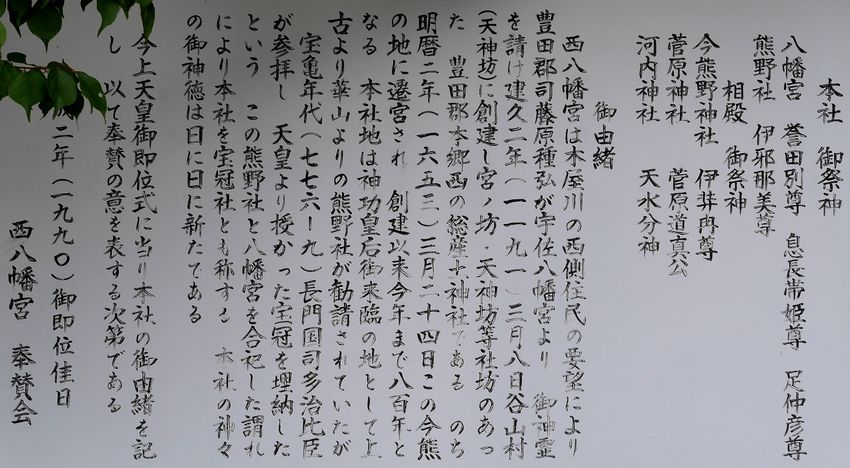 本社　御祭神
八幡宮　誉田別尊　息長帯姫尊　足仲彦尊
熊野社　伊邪那美尊
相殿　御祭神
今熊野神社　伊弉冉尊
菅原神社　菅原道真公
河内神社　天水分神
御由緒
西八幡宮は本屋川の西側住民の要望により
豊田郡司藤原種弘が宇佐八幡宮より　御神霊
を請け建久二年（一一九一）三月八日谷山村
（天神坊）に創建し宮ノ坊・天神坊等社坊のあっ
た　豊田郡本郷西の総産土神社である　のち
明暦二年（一六五三）三月二十四日この今熊
の地に遷宮され　創建以来今年まで八百年と
なる　本社地は神功皇后御来臨の地として上
古より華山よりの熊野社が勧請されていたが
宝亀年代（七七六ー九）長門国司多治比臣
が参拝し　天皇より授かった宝冠を埋納した
という　この熊野社と八幡宮を合祀した謂れ
により本社を宝冠社とも称する　本社の神々
の御神徳は日に日に新たである
今上天皇御即位式に当り本社の御由緒を記
し　以て奉賛の意を表する次第である
二年（一九九〇）御即位佳日
西八幡宮　奉賛会